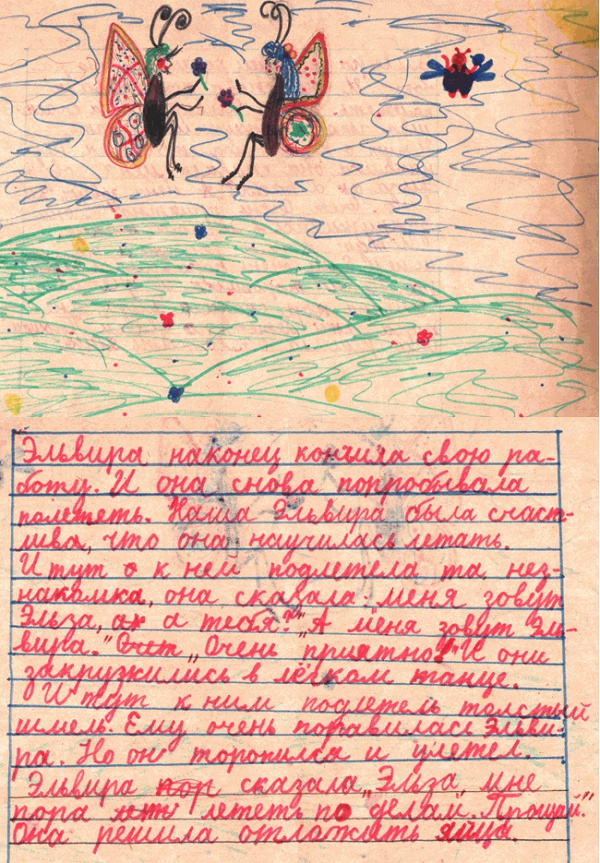 Эльвира наконец кончила свою ра-
боту. И она снова попробывала
полететь. Наша Эльвира была счаст-
лива, что она, научилась летать.
И тут к ней подлетела та, нез-
накомка, она сказала: „меня зовут
Эльза, а тебя?" „А меня зовут Эль-
вира." „Очень приятно!" И они
закружились в лёгком танце.
И тут к ним подлетель толстый
шмель. Ему очень понравилась Эльви-
ра. Но он торопился и улетел.
Эльвира сказала „Эльза, мне
пора лететь по делам. Прощай."
Она решила отложить яйца.